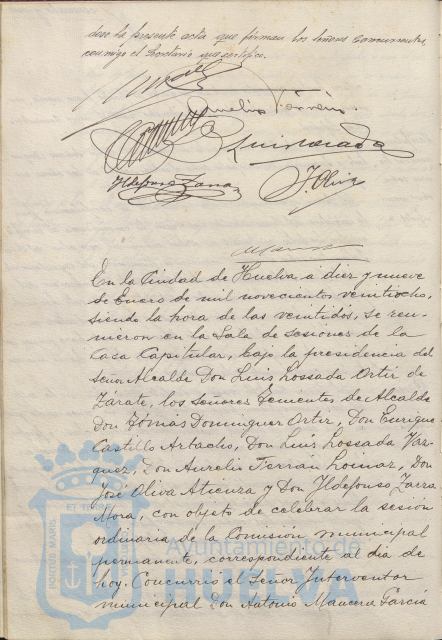 dose la presente acta que firman los señores concurrentes,
conmigo el Secretario que certifico.
Aurelio Terrán
Luis Losada
Ildefonso Zarra
J. Oliva
En la Ciudad de Huelva a diez y nueve
de Enero de mil novecientos veintiocho,
siendo la hora de las veintidos, se reu-
nieron en la Sala de sesiones de la
Casa Capitular, bajo la presidencia del
señor Alcalde Don Luis Lossada Ortiz de
Zárate, los señores Tenientes de Alcalde
Don Tomás Dominguez Ortiz, Don Enrique
Castillo Artacho, Don Luis Lossada Váz-
quez, Don Aurelio Terrán Loinaz, Don
José Oliva Atienza y Don Ildefonso Zarza
Mora, con objeto de celebrar la sesión
ordinaria de la Comisión municipal
permanente, correspondiente al dia de
hoy. Concurrió el Señor Interventor
municipal Don Antonio Mancera García
Ayuntamiento de
HUELVA
PORTUS MARIS
ET TERRAE